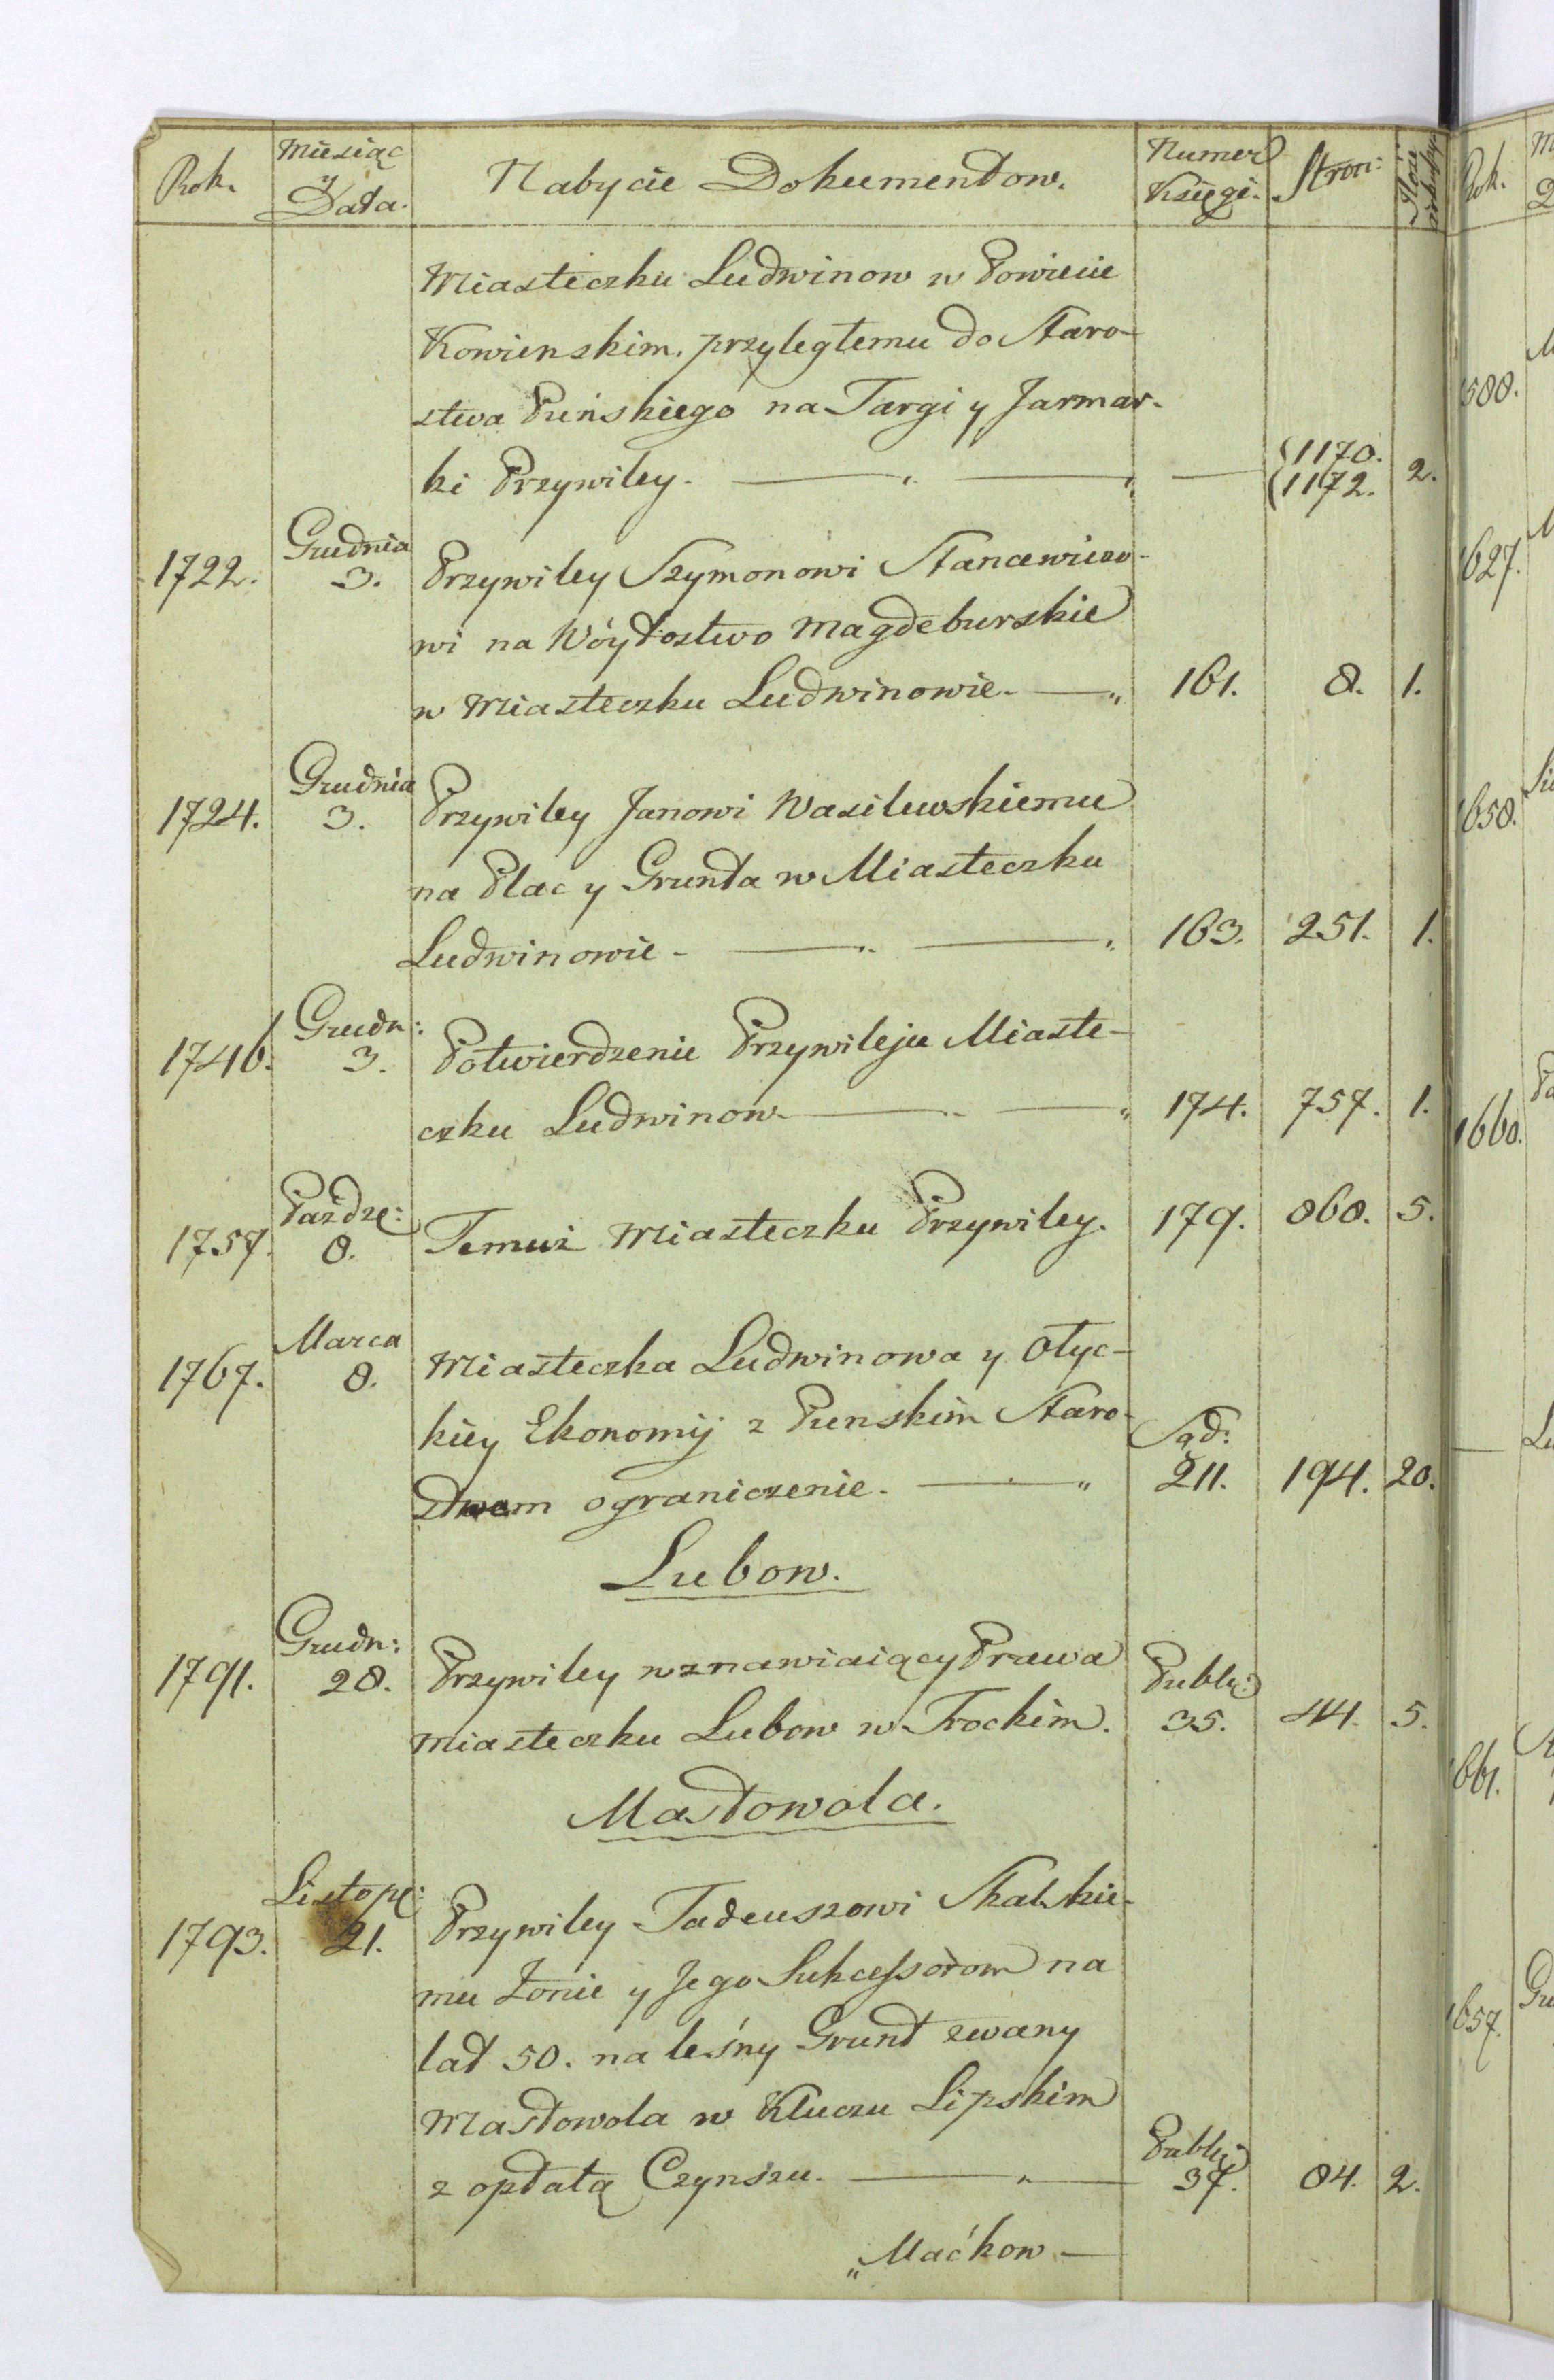 Rok. Miesiąc y Data. Nabycie Dokumentow. Numer Księgi. Stron:
Miasteczku Ludwinow w Powiecie
Kowienskim, przyległemu do Staro-
stwa Puńskiego na Targi y Jarmar-
ki Przywiley. — „ — „ — 1170. 1172. 2.
1722. Grudnia 3. Przywiley Szymonowi Stancewiczo-
wi na Wóytostwo Magdeburskie
w Miasteczku Ludwinowie. — „ 161. 8. 1.
1724. Grudnia 3. Przywiley Janowi Wasilewskiemu
na Plac y Grunta w Miasteczku
Ludwinowie - — „ — „ 163. 251. 1.
1746. Grudn: 3. Potwierdzenie Przywileju Miaste-
czku Ludwinow — „ — „ 174. 757. 1.
1757. Paźdz: 8. Temuż Miasteczku Przywiley. 179. 868. 5.
1767. Marca 8. Miasteczka Ludwinowa y Olyc-
kiey Ekonomij z Punskim Staro-
stwem ograniczenie. — „ Sąd: 211. 194. 20.
Lubow.
1791. Grudn: 28. Przywiley wznawiaiący Prawa
Miasteczku Lubow w Trockim. Publ: 35. 44. 5.
Masłowola.
1793. Listop: 21. Przywiley Tadeuszowi Skalskie-
mu Żonie y Jego Sukcessorom na
lat 50. na leśny Grunt zwany
Masłowola w Kluczu Lipskim
z opłatą Czynszu. — „ — Publ: 37. 84. 2.
„Maćkow —
Rok.
1588.
1627.
1658.
1660.
1661.
1657.